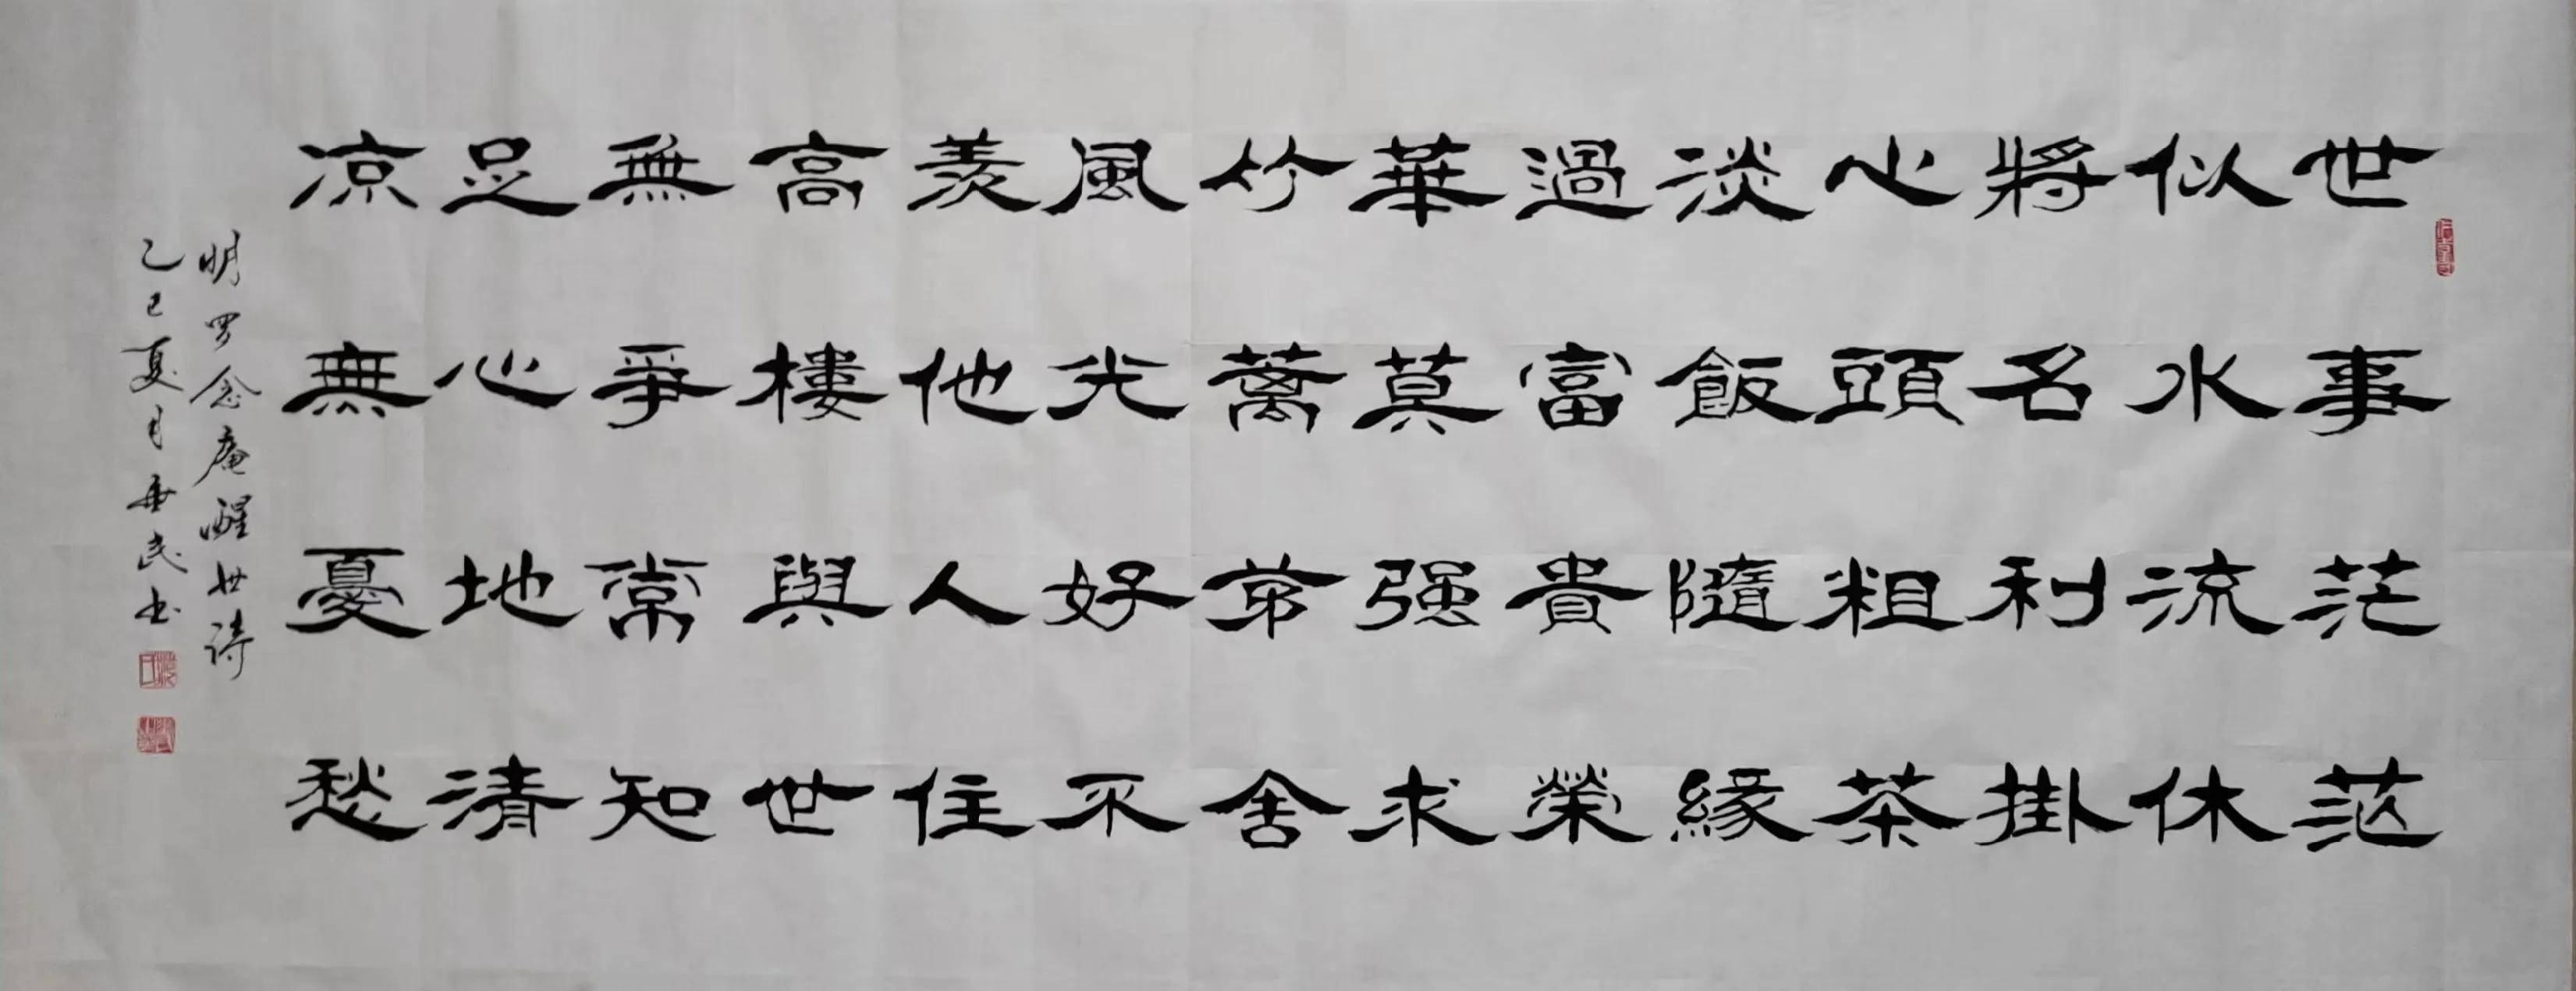 世事茫茫
似水流休
將名利掛
心頭粗茶
淡飯隨緣
過富貴榮
華莫强求
竹蓠茅舍
風光好不
羨他人住
高樓與世
無爭常知
足心地清
凉無憂愁
明罗念庵醒世诗
乙巳夏月民书